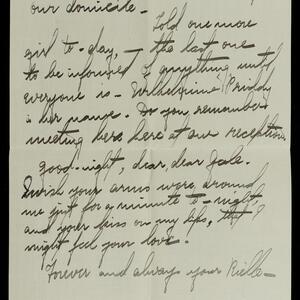 our domicile –
Told one more
girl to-day, – the last one
to be informed of anything until
everyone is – Wilhelmina Priddy
is her name. Do you remember
meeting her here at our reception
Good-night, dear, dear Gale.
I wish your arms were around
me just for a minute to-night,
and your kiss on my lips, that I
might feel your love.
Forever and always your Rielle –